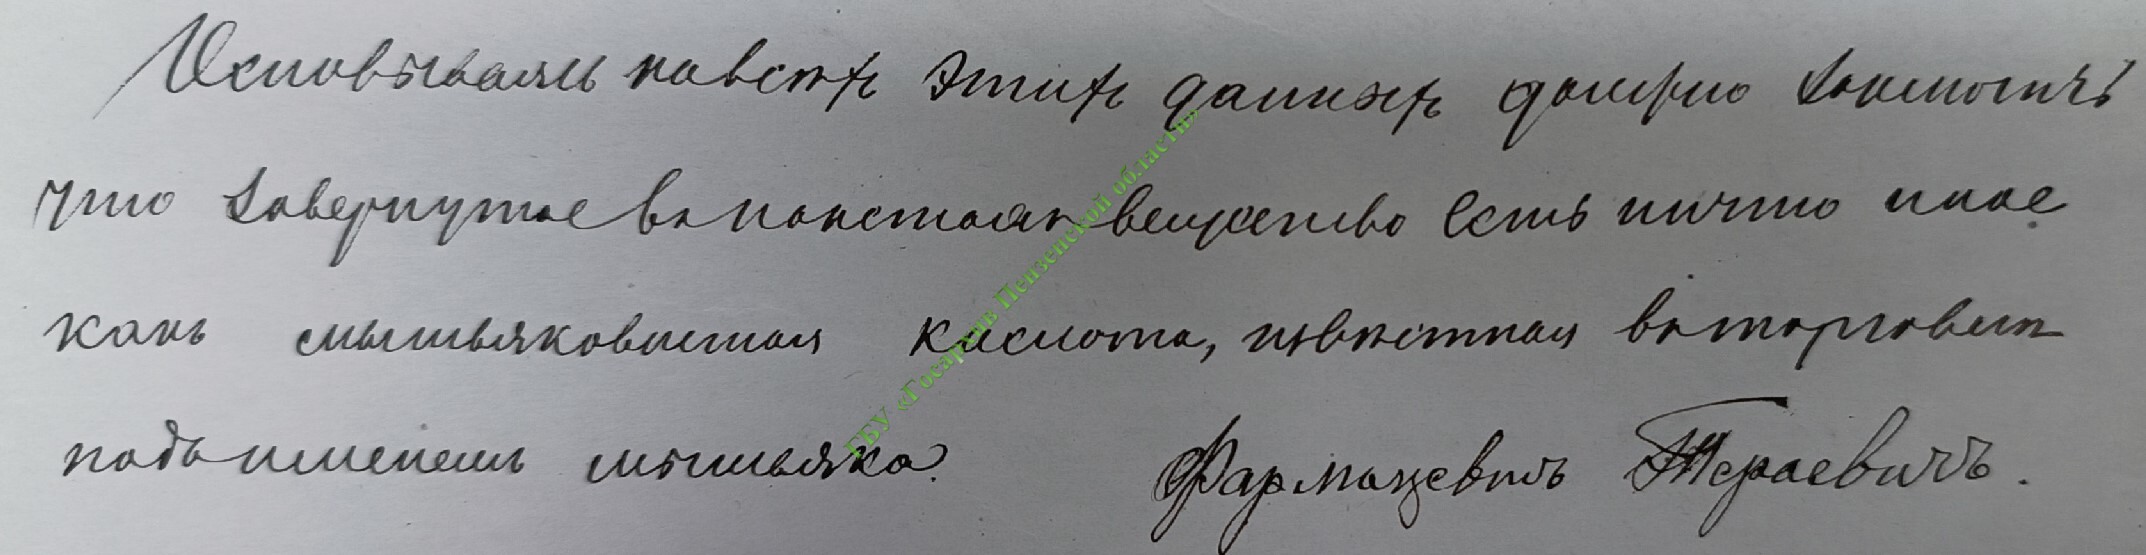 Основываясь на всѣхъ этихъ данныхъ должно заключить
что завернутое въ
вещество есть ничто иное
какъ мышьяковистая кислота, извѣстная въ торговлѣ
подъ именемъ мышьяка.
Фармацевтъ
ГБУ «Госархив Пензенской области»